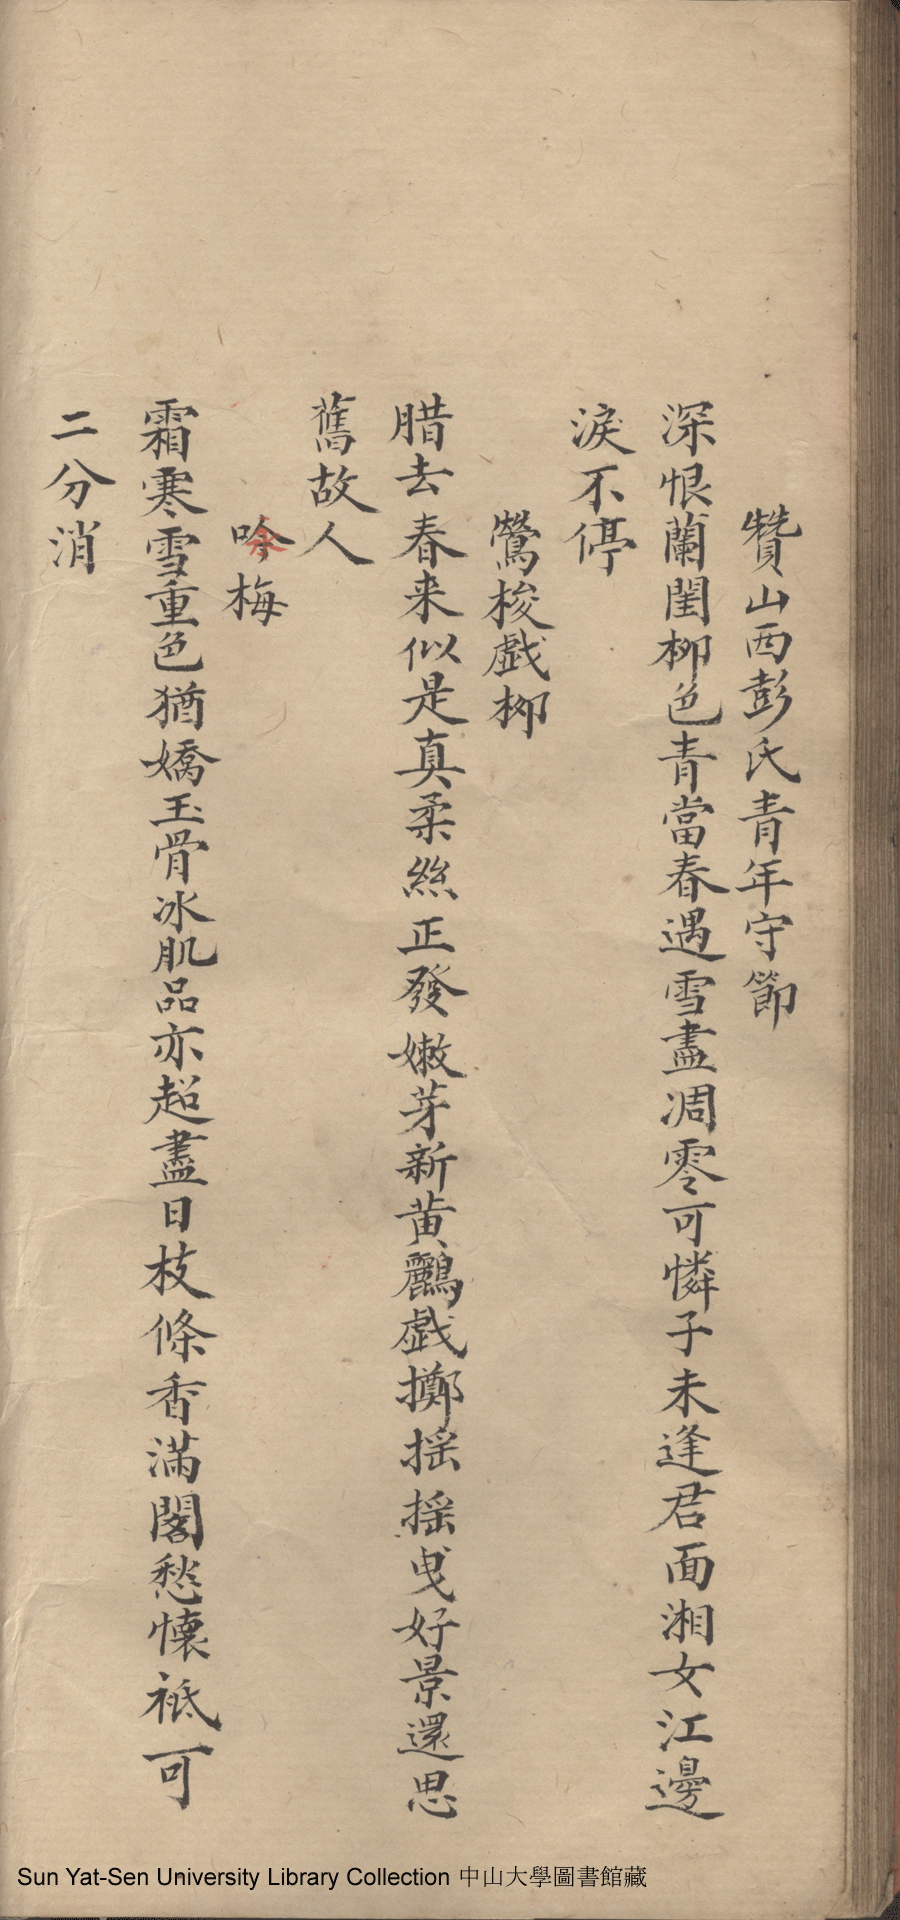 贊山西彭氏青年守節
深恨蘭閨柳色青當春遇雪盡凋零可憐子未逢君面湘女江邊
淚不停
鶯梭戯柳
腊去春来似是真柔絲正發嫩芽新黄鸝戯擲摇摇曵好景還思
舊故人
吟梅
霜寒雪重色猶嬌玉骨冰肌品亦超盡日枝條香滿閣愁懷祗可
二分消
Sun Yat-Sen University Library Collection 中山大學圖書館藏